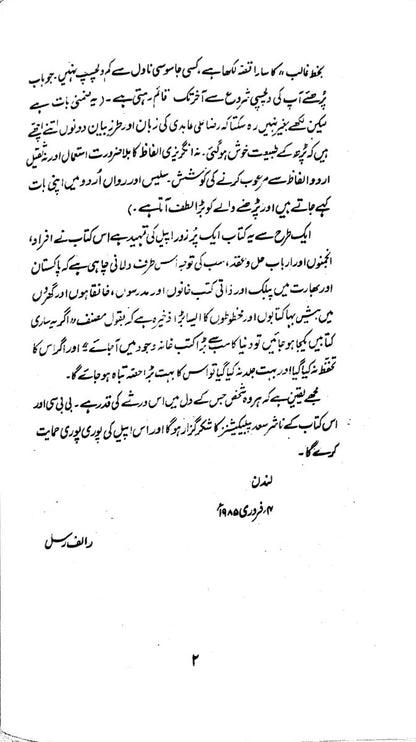 بخط غالب" کا سارا قصہ لکھا ہے، کسی جاسوسی ناول سے کم دلچسپ نہیں۔ جو باب
پڑھئے آپ کی دلچسپی شروع سے آخر تک قائم رہتی ہے۔ (یہ ضمنی بات ہے
لیکن لکھے بغیر نہیں رہ سکتا کہ رضا علی عابدی کی زبان اور طرز بیان دونوں اتنے اچھے
ہیں کہ پڑھ کے طبیعت خوش ہو گئی۔ نہ انگریزی الفاظ کا بلا ضرورت استعمال اور نہ ثقیل
اردو الفاظ سے مرعوب کرنے کی کوشش۔ سلیس اور رواں اُردو میں اپنی بات
کہے جاتے ہیں اور پڑھنے والے کو بڑا لطف آتا ہے۔)
ایک طرح سے یہ کتاب ایک پُر زور اپیل کی تمہید ہے اس کتاب نے افراد،
انجمنوں اور ارباب حل و عقد، سب کی توجہ اُس طرف دلانی چاہی ہے کہ پاکستان
اور بھارت میں پبلک اور ذاتی کتب خانوں اور مدرسوں، خانقاہوں اور گھروں
میں بیش بہا کتابوں اور مخطوطوں کا ایسا بڑا ذخیرہ ہے کہ بقول مصنف "اگر یہ ساری
کتابیں یکجا ہو جائیں تو دنیا کا سب سے بڑا کتب خانہ وجود میں آ جائے" اور اگر اس کا
تحفظ نہ کیا گیا اور بہت جلد نہ کیا گیا تو اس کا بہت بڑا حصہ تباہ ہو جائے گا۔
مجھے یقین ہے کہ ہر وہ شخص جس کے دل میں اس ورثے کی قدر ہے۔ بی بی سی اور
اس کتاب کے ناشر سعد پبلیکیشنز کا شکر گزار ہوگا اور اس اپیل کی پوری پوری حمایت
کرے گا۔
لندن
۴؍ فروری ۱۹۸۵ء
رالف رسل
۲